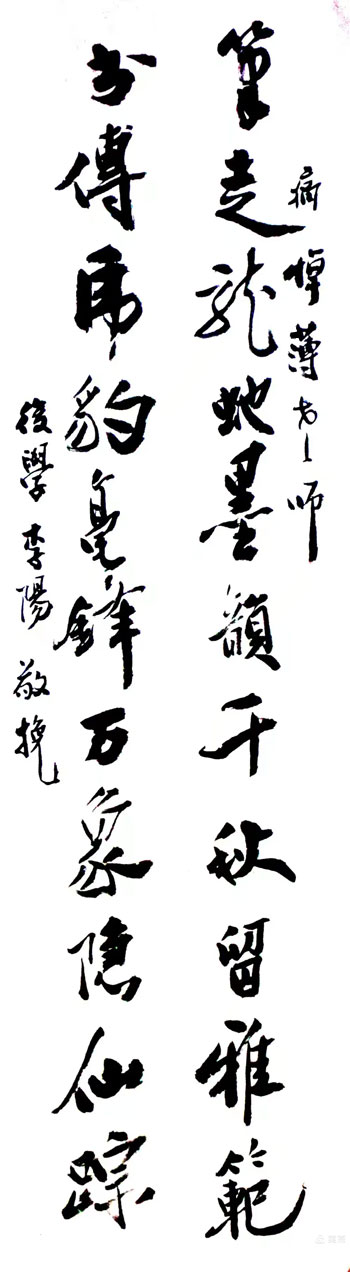 痛悼薄老师
筆走龍蛇墨韻千秋留雅範
书傳虎豹毫鋒万象隐仙踪
後學李陽敬挽